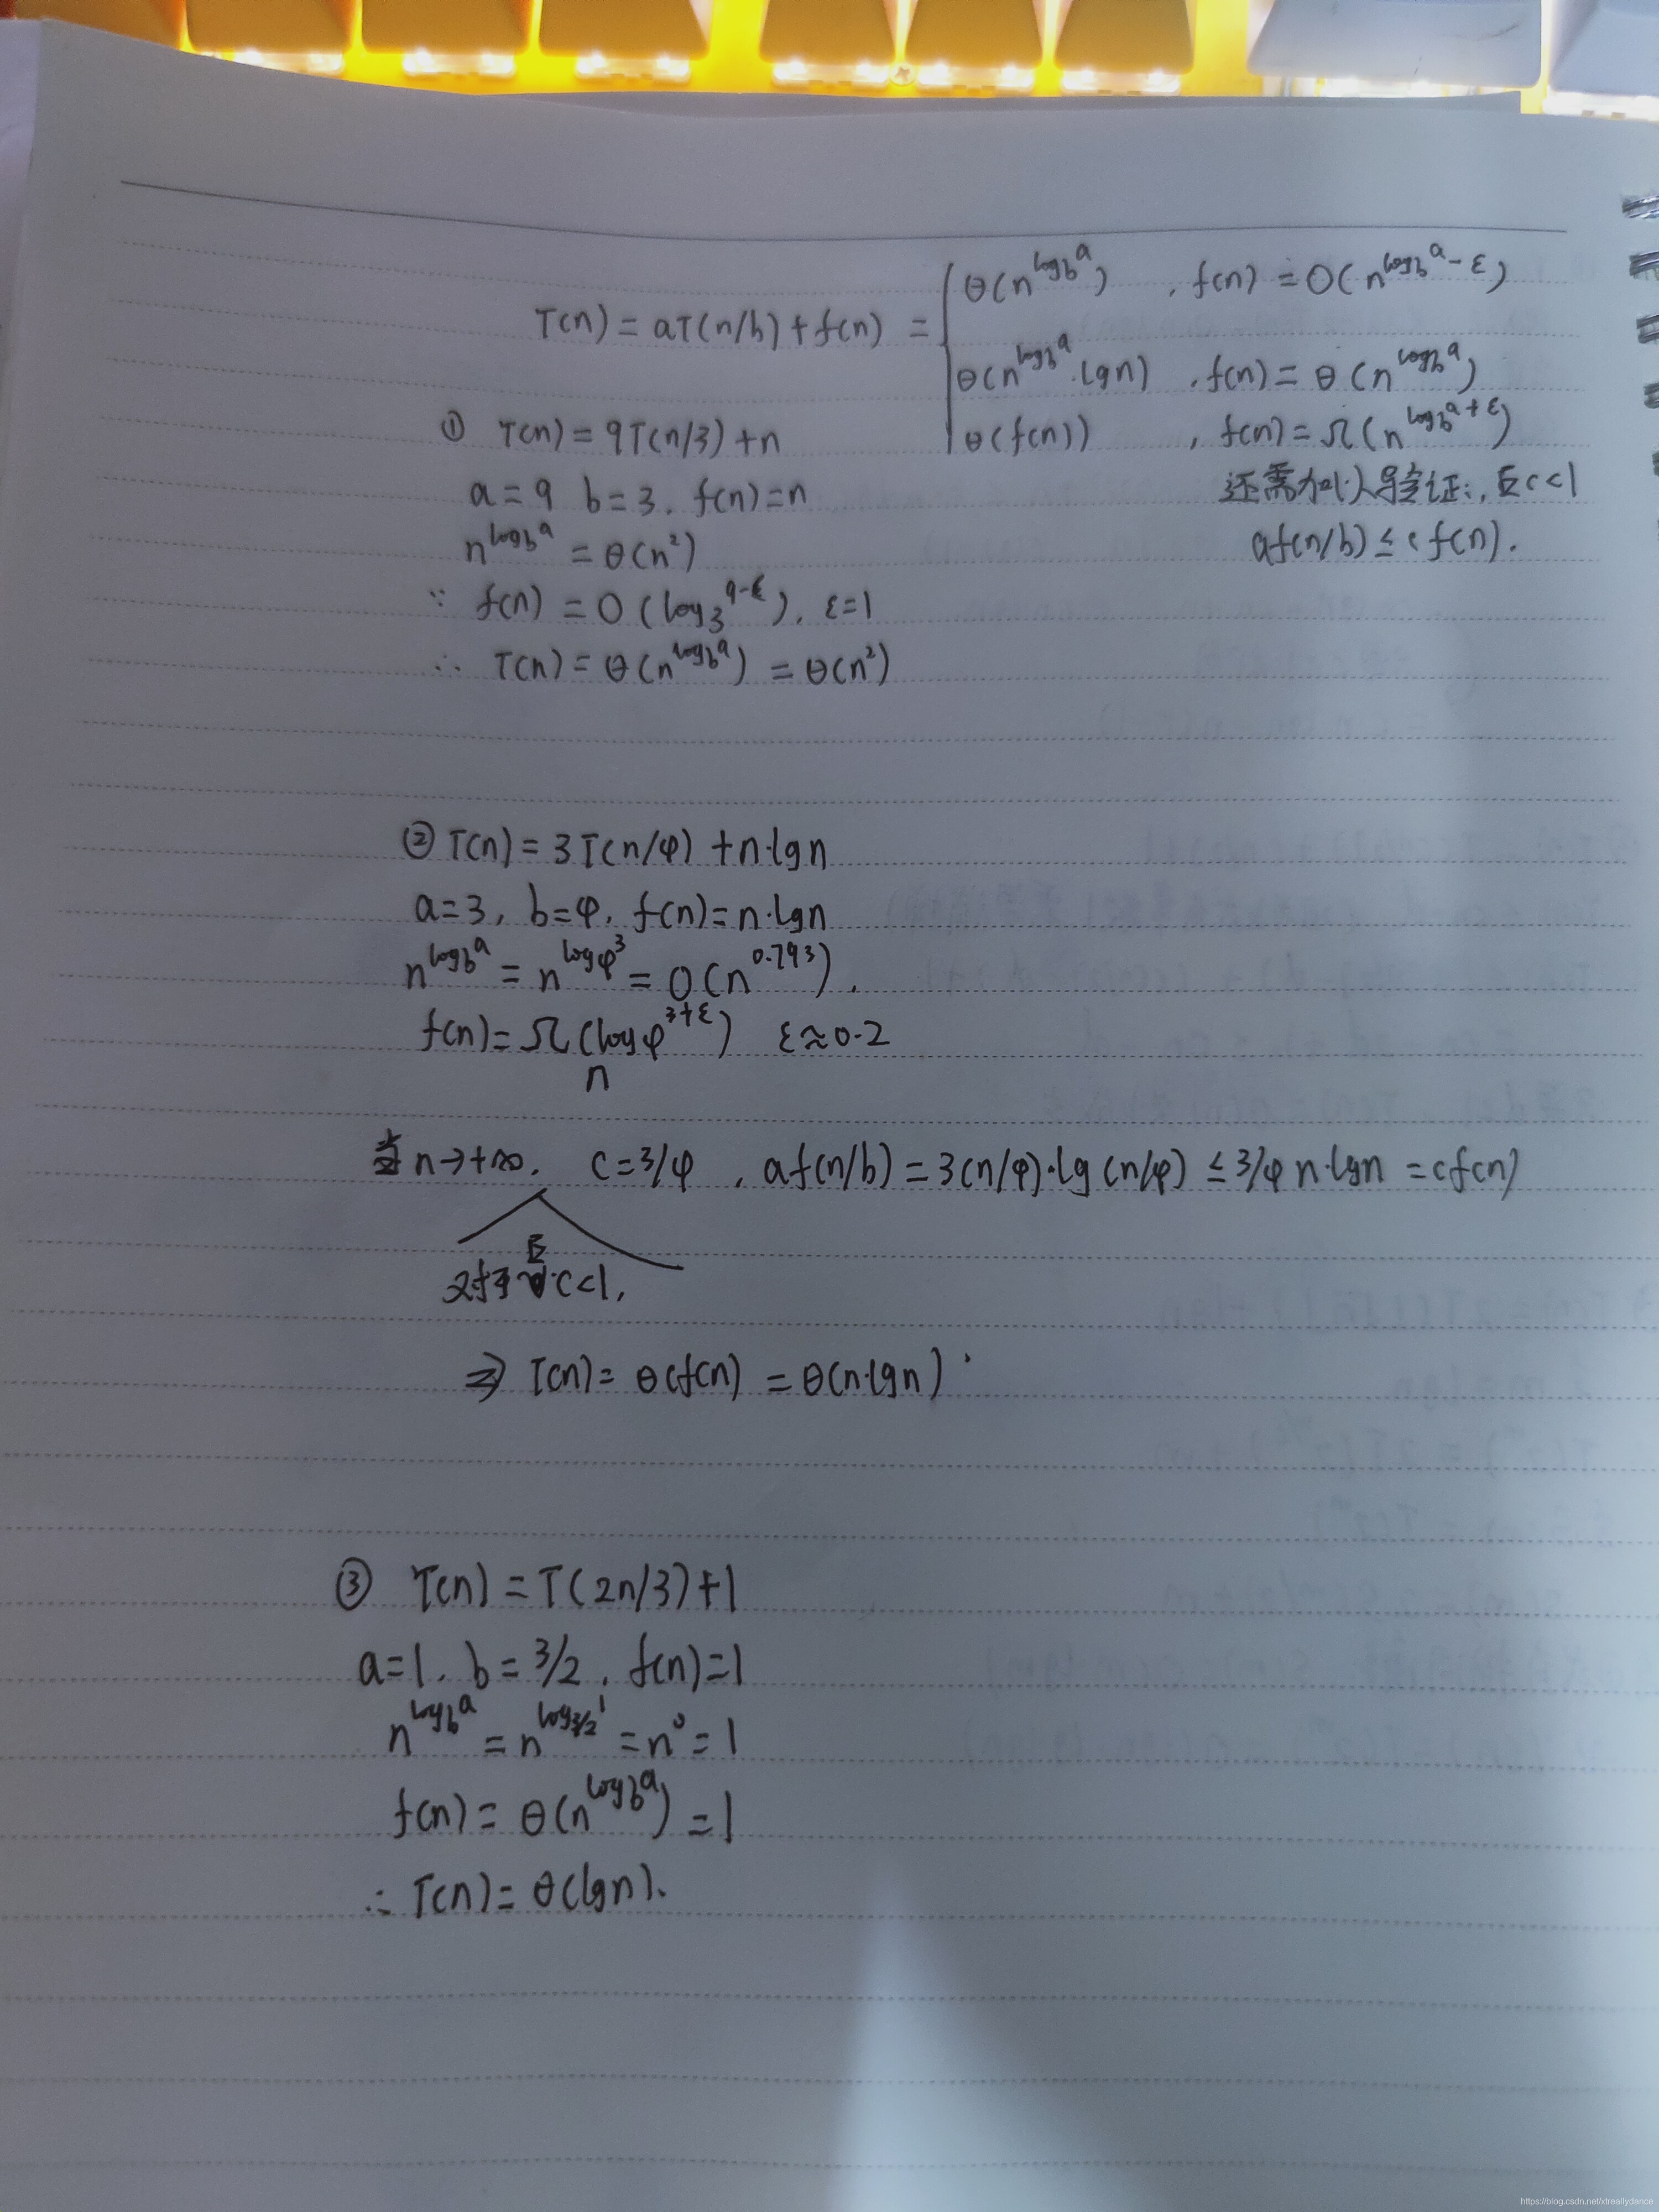 T(n) = aT(n/b) + f(n) = { θ(n^{log_b^a}) , f(n) = O(n^{log_b^{a-ε}})
θ(n^{log_b^a}·lgn) , f(n) = θ(n^{log_b^a})
θ(f(n)) , f(n) = Ω(n^{log_b^{a+ε}})
还需加以验证:, ∃c<1
af(n/b) ≤ cf(n).
① T(n) = 9T(n/3) + n
a = 9 b = 3, f(n) = n
n^{log_b^a} = θ(n²)
∵ f(n) = O(log_3^{9-ε}), ε=1
∴ T(n) = θ(n^{log_b^a}) = θ(n²)
② T(n) = 3T(n/φ) + n·lgn
a=3, b=φ, f(n)=n·lgn
n^{log_b^a} = n^{log_φ^3} = O(n^{0.793}).
f(n) = Ω(log_φ^{3+ε}) ε≈0.2
n
当n→+∞, c=3/φ , af(n/b) = 3(n/φ)·lg(n/φ) ≤ 3/φ n·lgn = cf(n)
∃
对于 c<1,
⇒ T(n) = θ(f(n)) = θ(n·lgn)
③ T(n) = T(2n/3)+1
a=1, b=3/2, f(n)=1
n^{log_b^a} = n^{log_{3/2}^1} = n^0 = 1
f(n) = θ(n^{log_b^a}) = 1
∴ T(n) = θ(lgn).
https://blog.csdn.net/xtreallydance